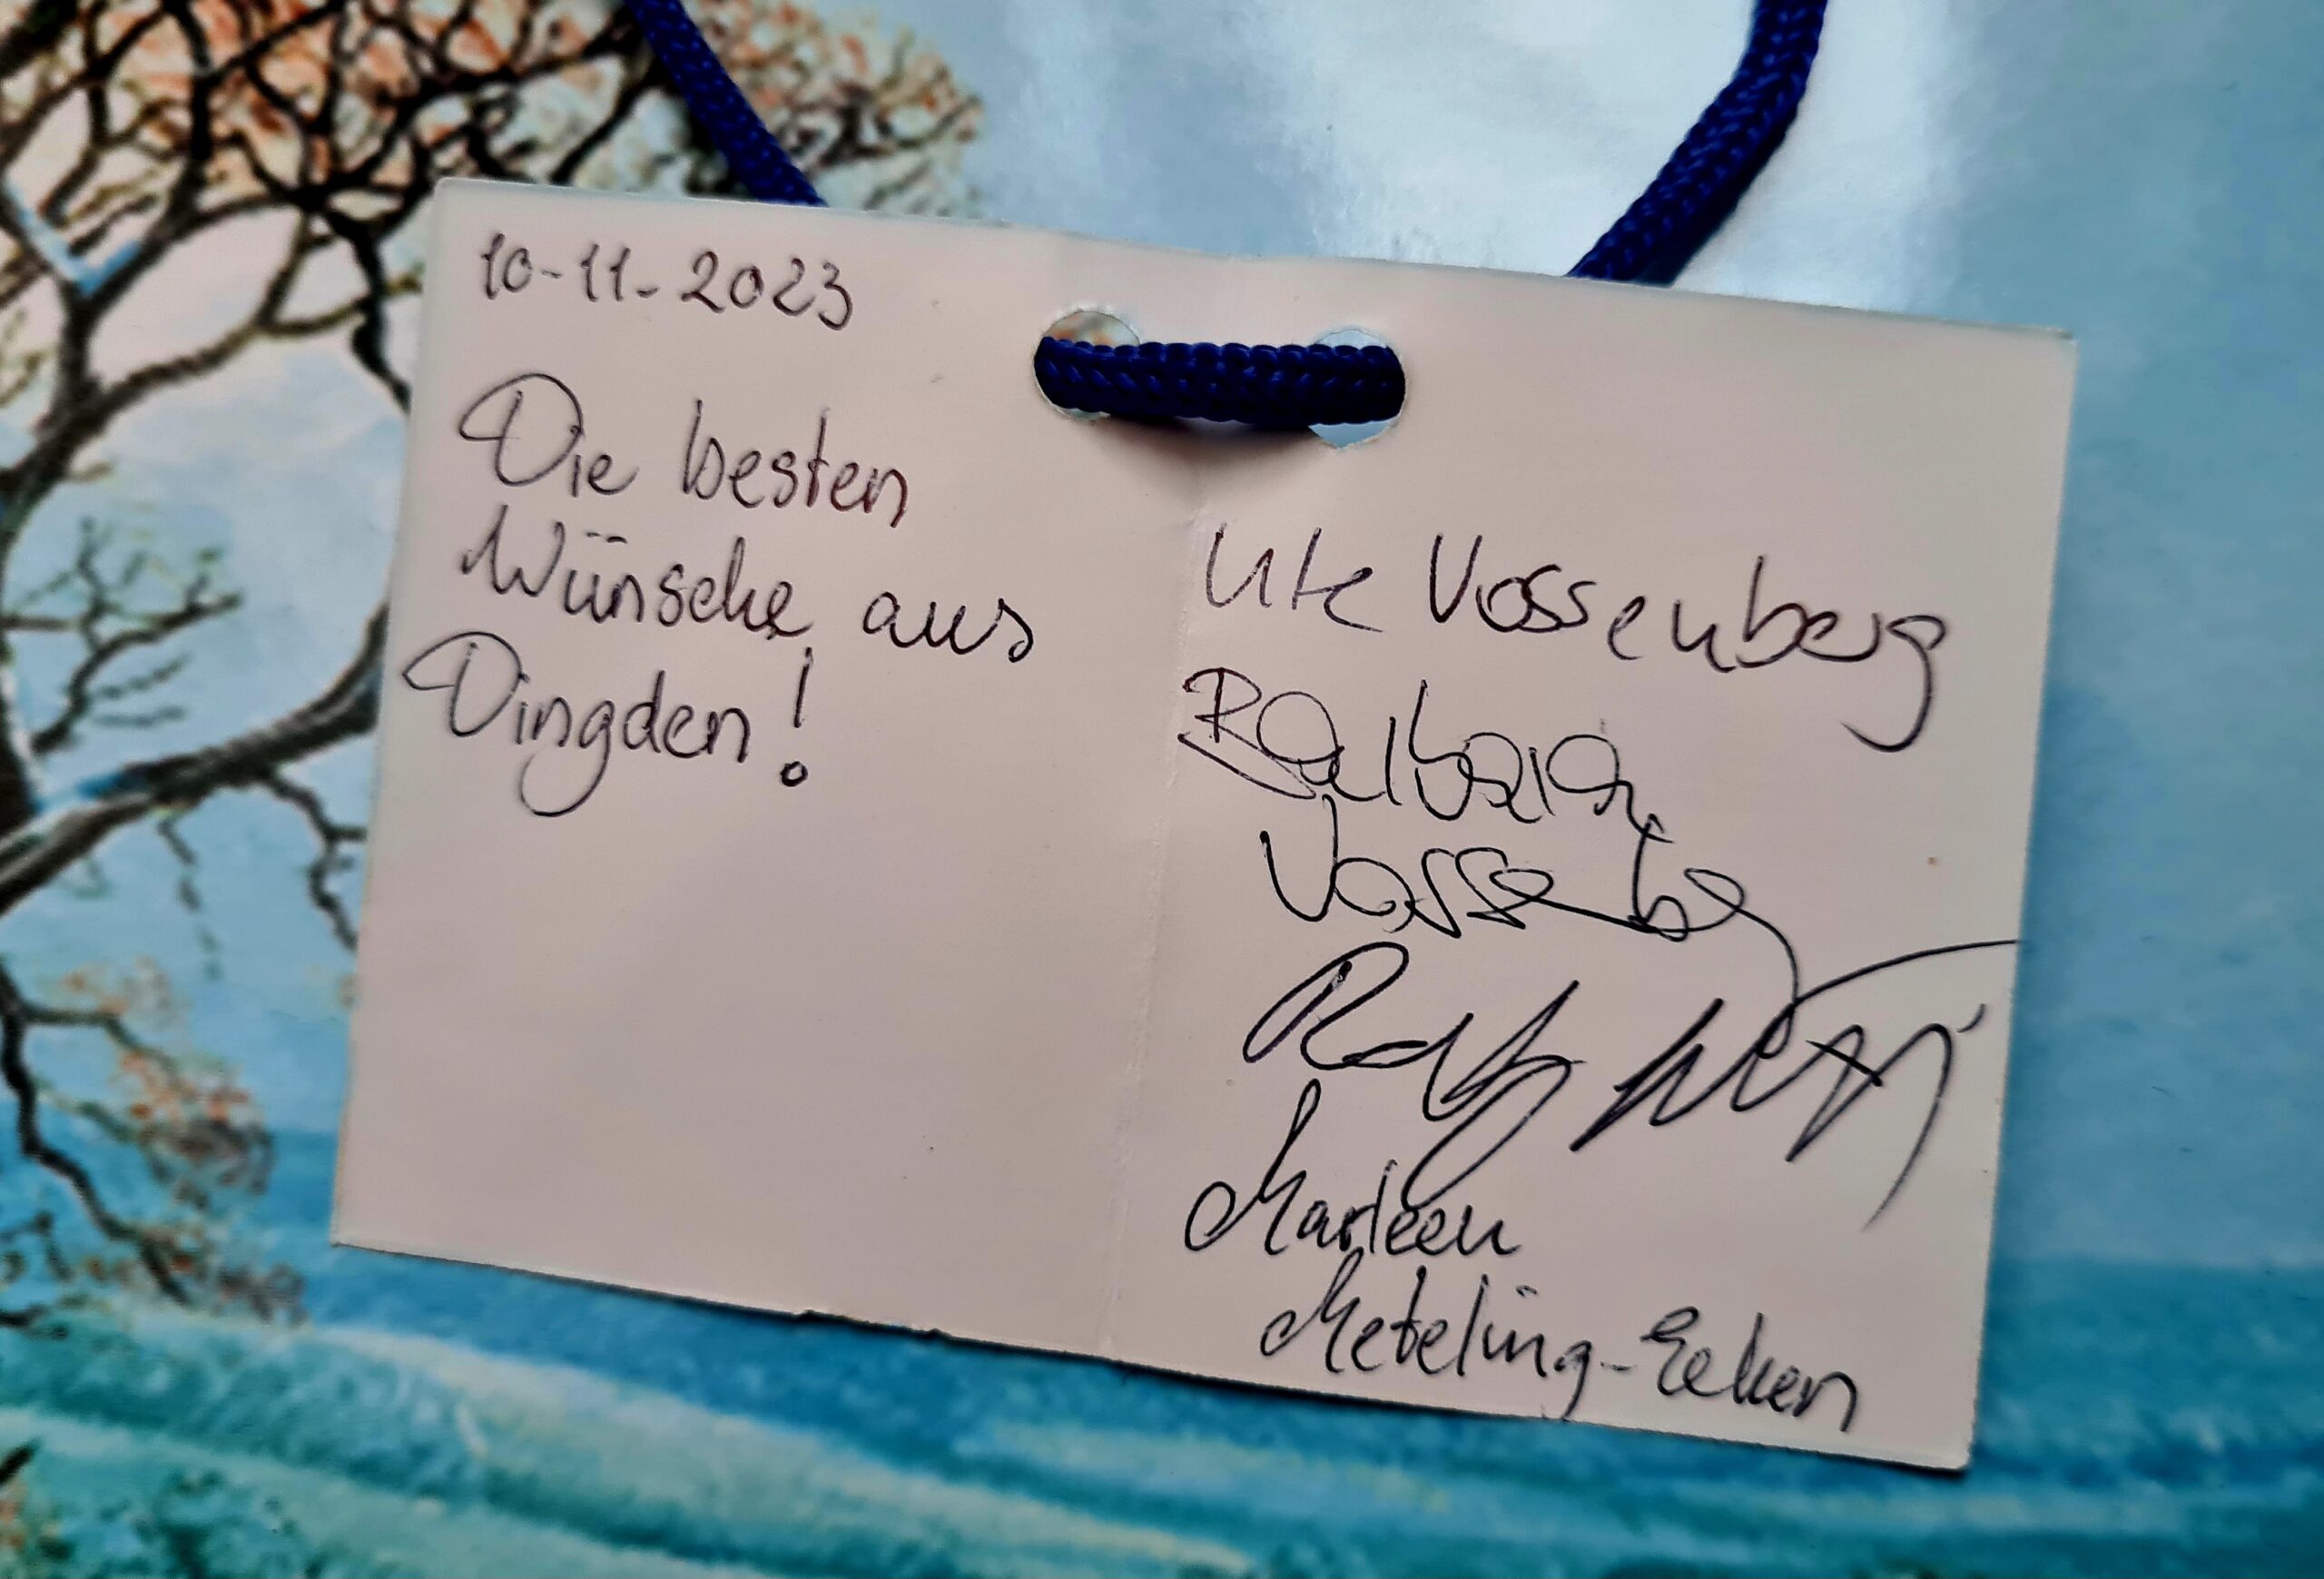 10-11-2023
Die besten
Wünsche aus
Dingden!
Ute Vossenberg
Barbara
Vossenberg
Ralf
Marleen
Meteling-Eeken